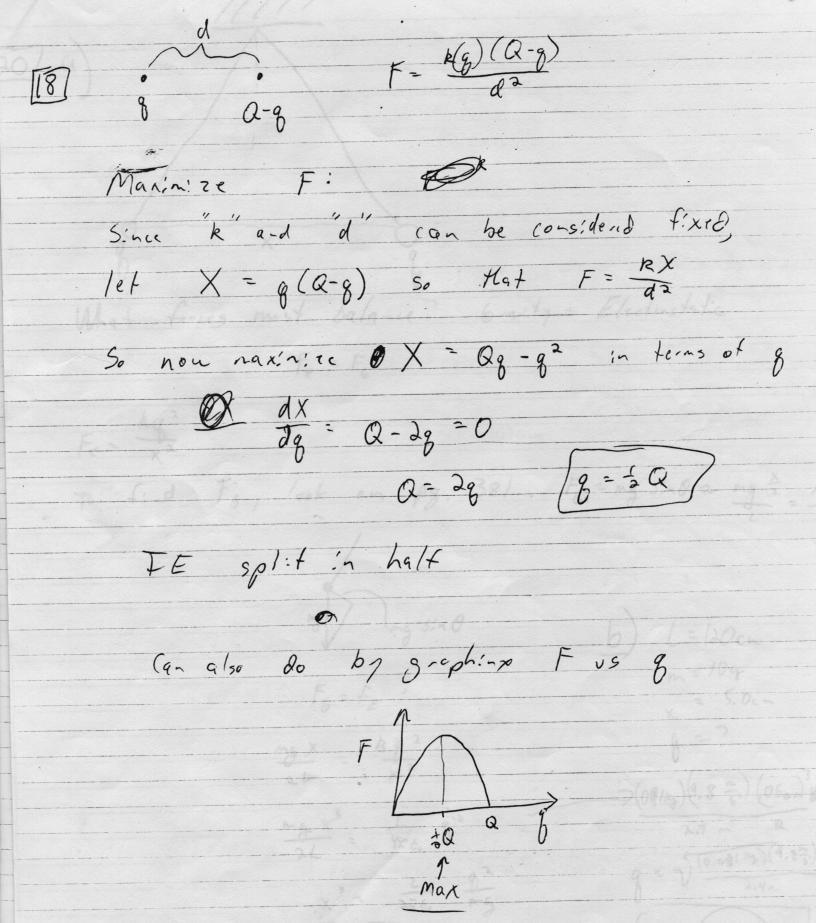 d
18
q
Q-q
F = k(q)(Q-q) / d²
Maximize F:
Since "k" and "d" can be considerd fixed,
let X = q(Q-q) so that F = kX / d²
So now maximize X = Qq - q² in terms of q
dX/dq = Q - 2q = 0
Q = 2q
q = ½ Q
IE split in half
Can also do by graphing F vs q
F
½Q
Q
q
Max